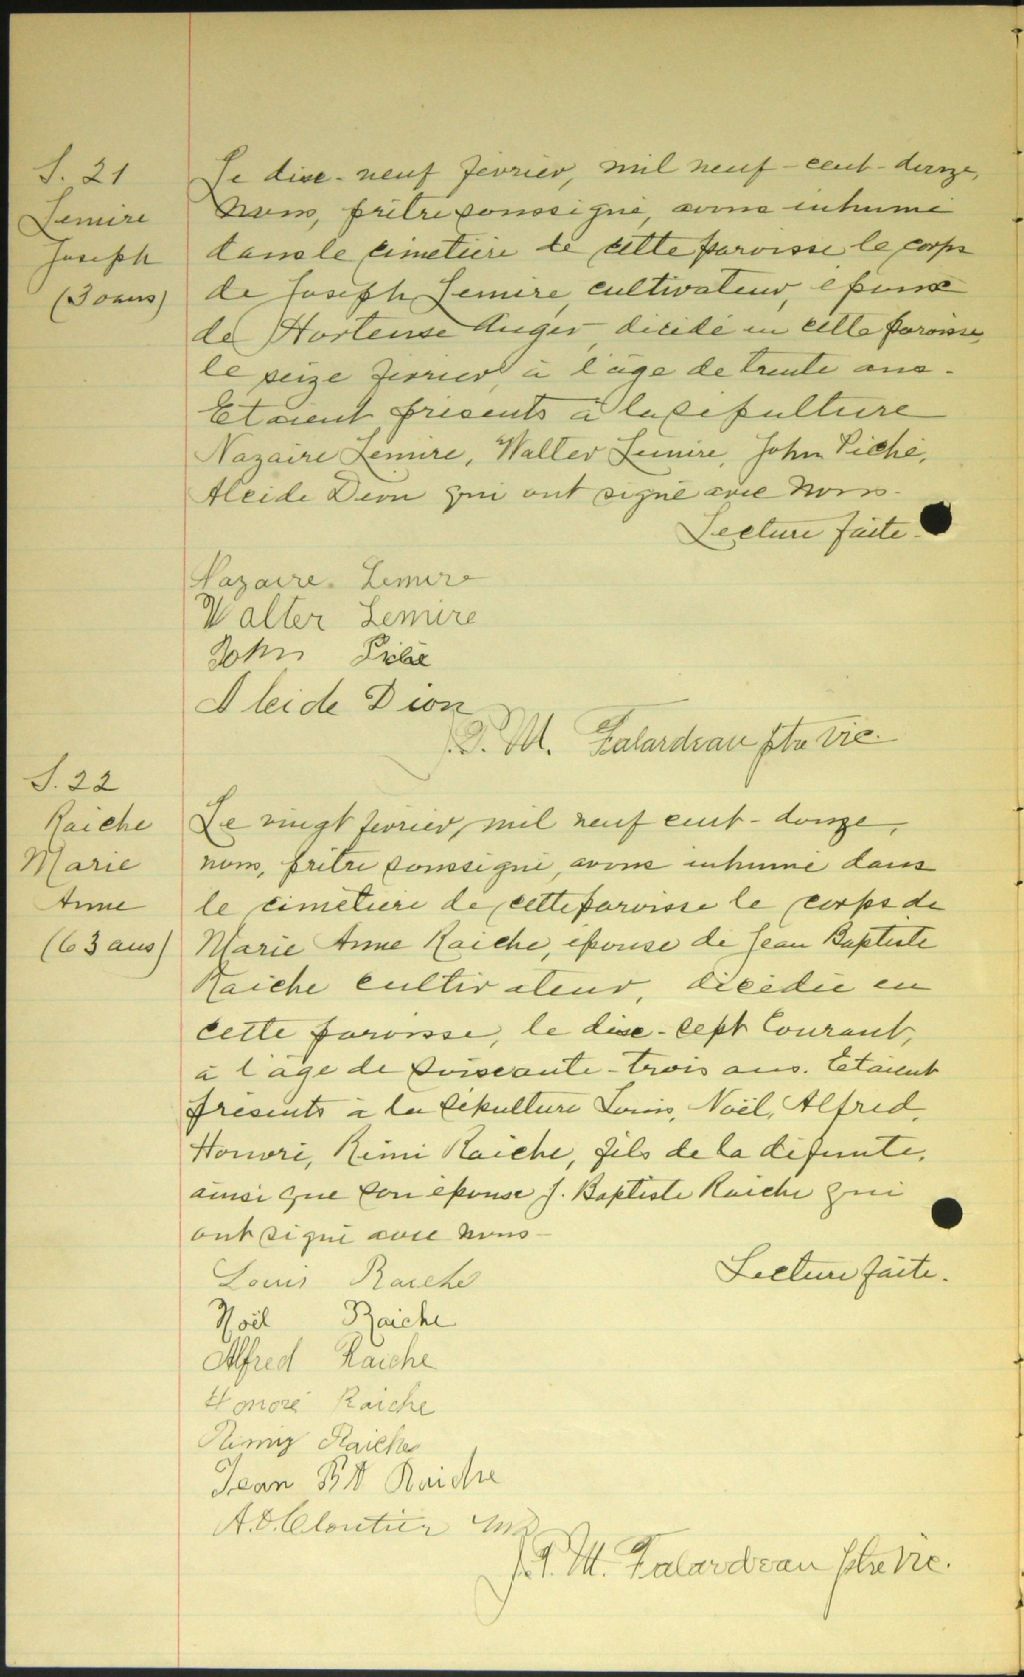 S. 21
Lemire
Joseph
(30 ans)
Le dix-neuf février, mil neuf-cent-douze,
nous, prêtre soussigné, avons inhumé
dans le cimetière de cette paroisse le corps
de Joseph Lemire, cultivateur, époux
de Hortense Auger, décédé en cette paroisse,
le seize février, à l'âge de trente ans.
Etaient présents à la sépulture
Nazaire Lemire, Walter Lemire, John Piché,
Alcide Dion qui ont signé avec nous.
Lecture faite.
Nazaire Lemire
Walter Lemire
John Piché
Alcide Dion
J. P. M. Falardeau ptre vic.
S. 22
Raiche
Marie
Anne
(63 ans)
Le vingt février, mil neuf cent-douze,
nous, prêtre soussigné, avons inhumé dans
le cimetière de cette paroisse le corps de
Marie Anne Raiche, épouse de Jean Baptiste
Raiche cultivateur, décédée en
cette paroisse, le dix-sept courant,
à l'âge de soixante-trois ans. Etaient
présents à la sépulture Louis, Noël, Alfred,
Honoré, Rémi Raiche, fils de la défunte,
ainsi que son épouse J. Baptiste Raiche qui
ont signé avec nous-
Lecture faite.
Louis Raiche
Noël Raiche
Alfred Raiche
Honoré Raiche
Rimiz Raiche
Jean Bt Raiche
A. D. Cloutier MD
J. P. M. Falardeau ptre vic.